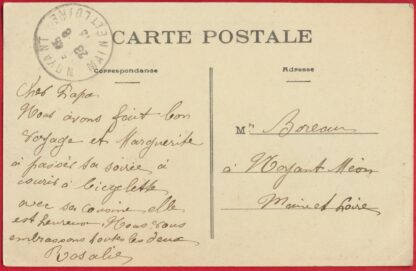 CARTE POSTALE
Correspondance
Adresse
NOYANT
MAINE-ET-LOIRE
Cher Papa
Nous avons fait bon
voyage et Marguerite
a passer sa soirée à
courir à bicyclette
avec sa cousine elle
est heureuse. Nous vous
embrassons toutes les deux
Rosalie
Mr Boreau
à Noyant Méon
Maine et Loire